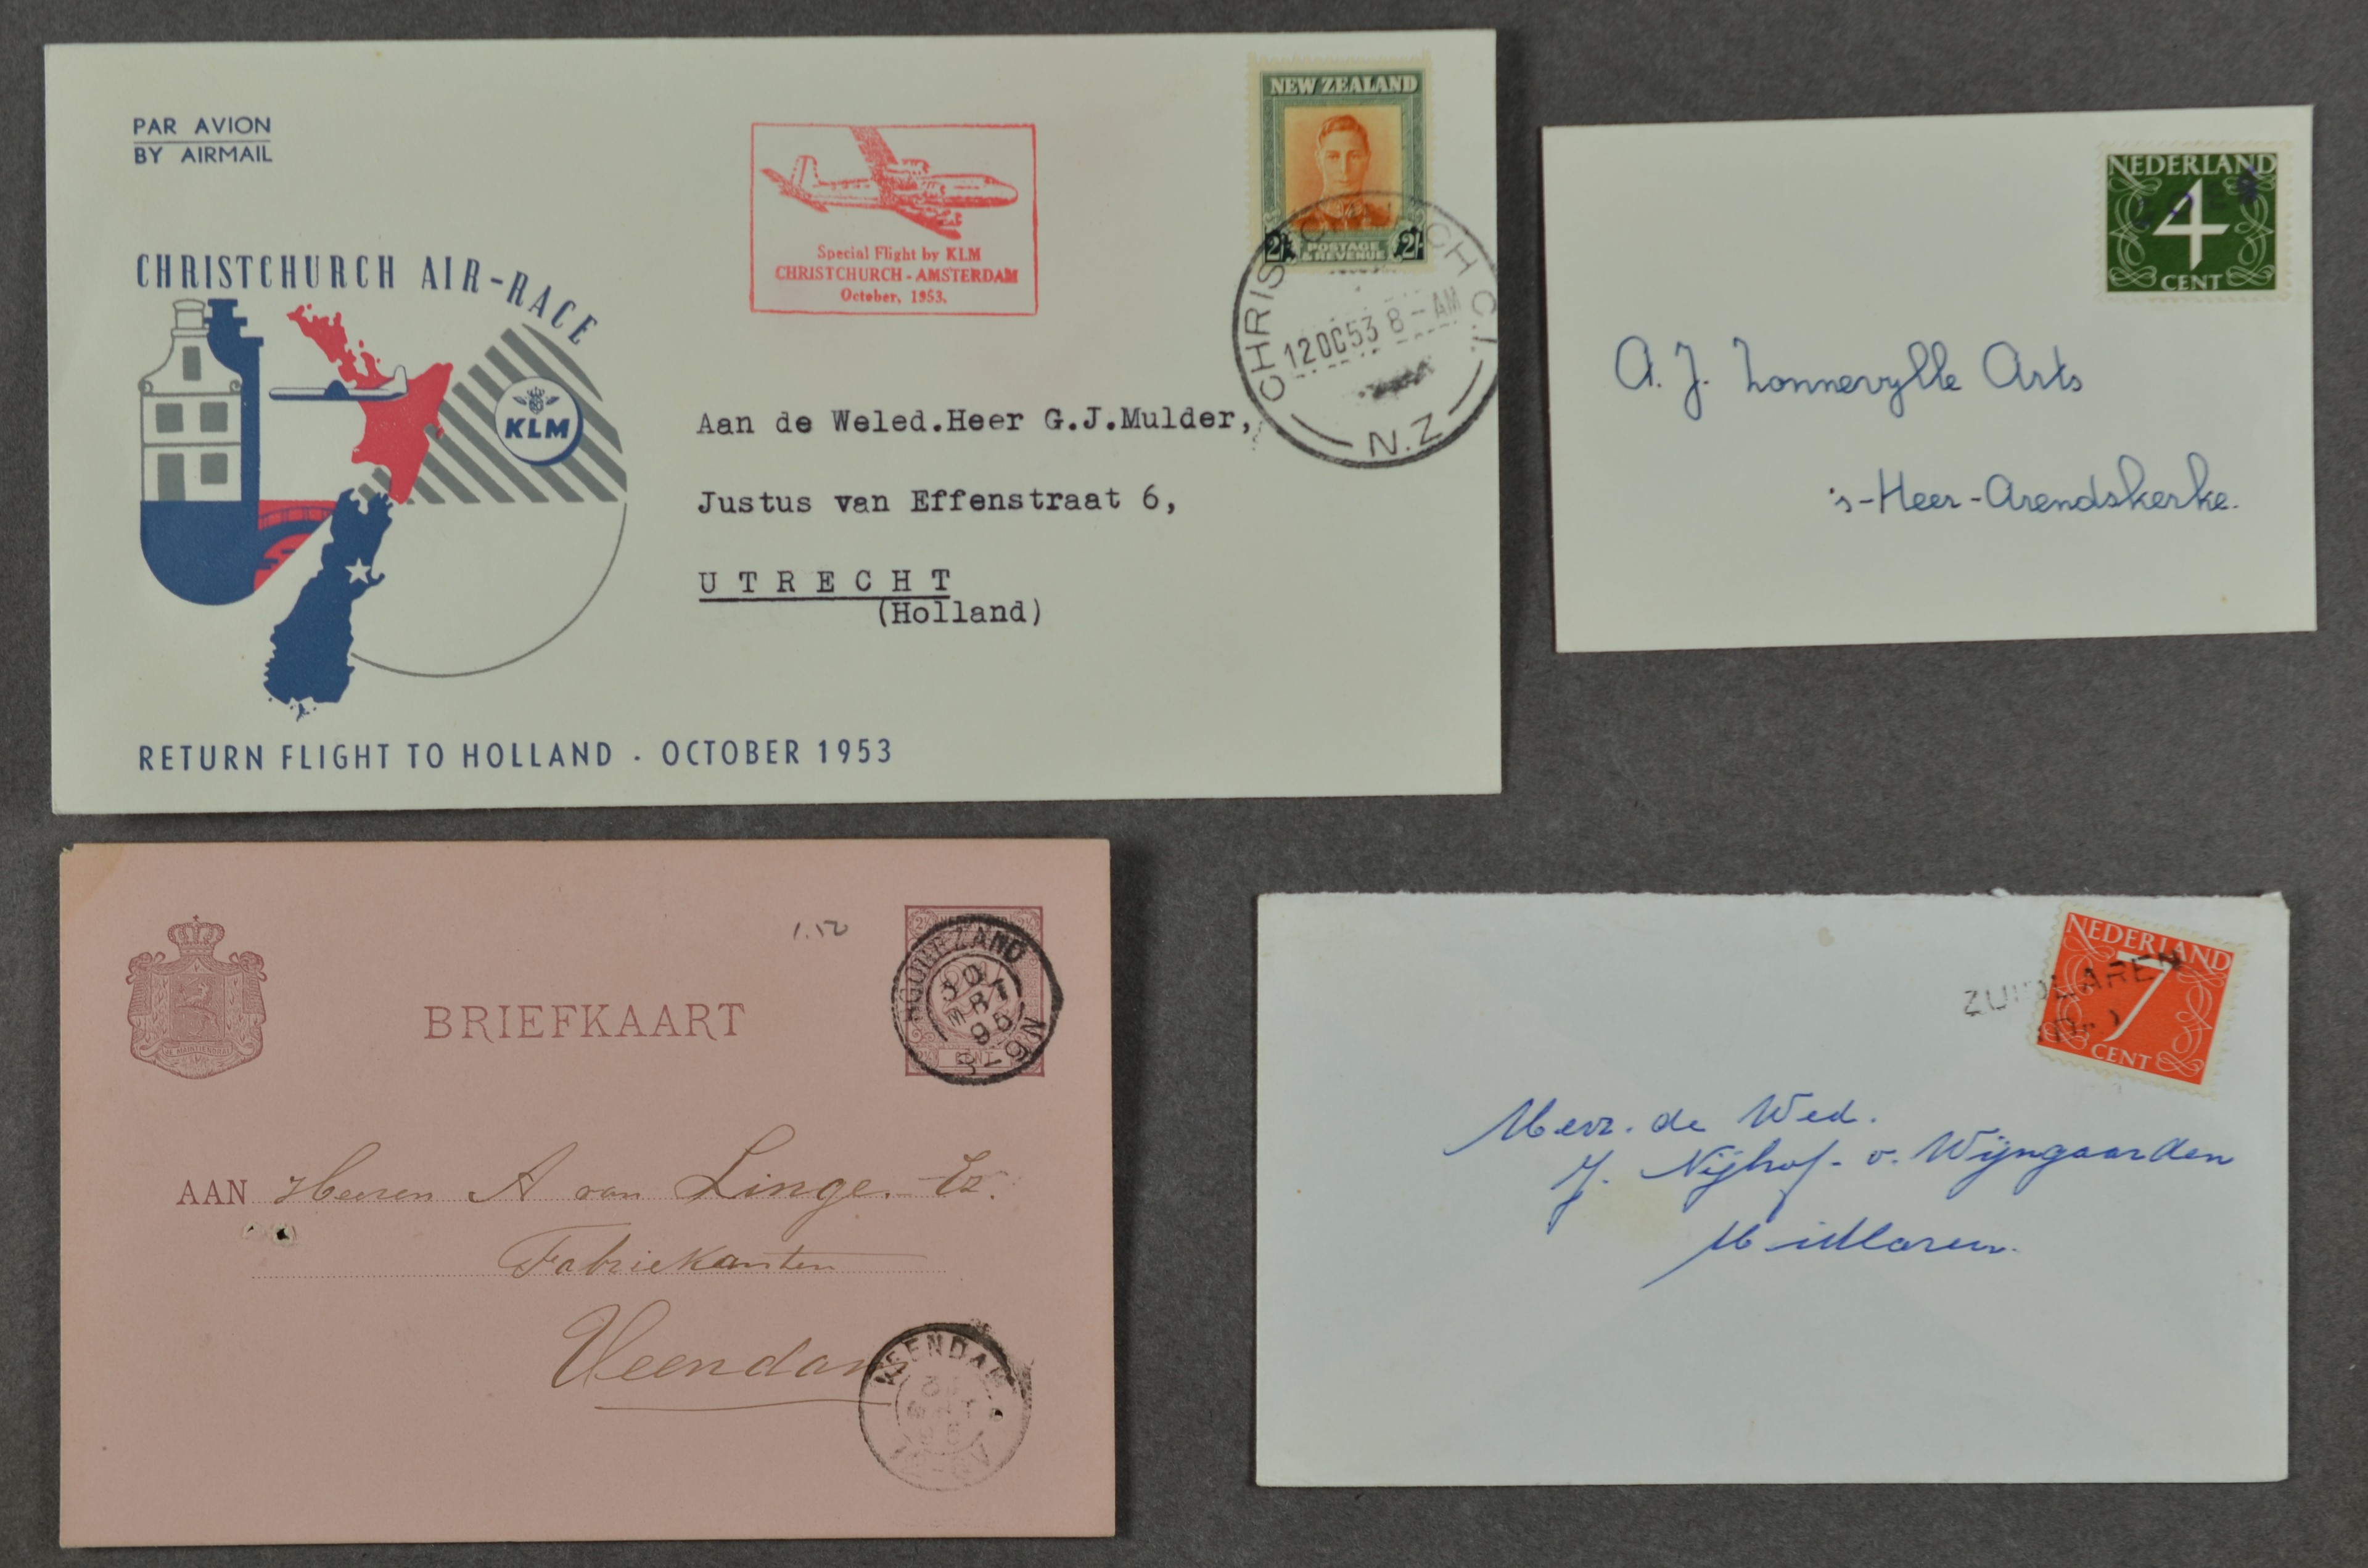 PAR AVION
BY AIRMAIL
CHRISTCHURCH AIR-RACE
KLM
RETURN FLIGHT TO HOLLAND · OCTOBER 1953
Special Flight by KLM
CHRISTCHURCH - AMSTERDAM
October, 1953.
NEW ZEALAND
2/- POSTAGE 2/-
& REVENUE
CHRISTCHURCH C.1.
12 OC 53 8 - AM
N.Z
Aan de Weled.Heer G.J.Mulder,
Justus van Effenstraat 6,
UTRECHT
(Holland)
NEDERLAND
4
CENT
A. J. Zonnevylle Arts
's-Heer-Arendskerke.
BRIEFKAART
1.50
HOOGEZAND
30
MRT
95
AAN Heeren A van Linge. Ez.
Fabriekanten
Veendam
VEENDAM
NEDERLAND
7
CENT
ZUIDLAREN
(Dr.)
Mevr. de Wed.
J. Nijhof - v. Wijngaarden
Midlaren.